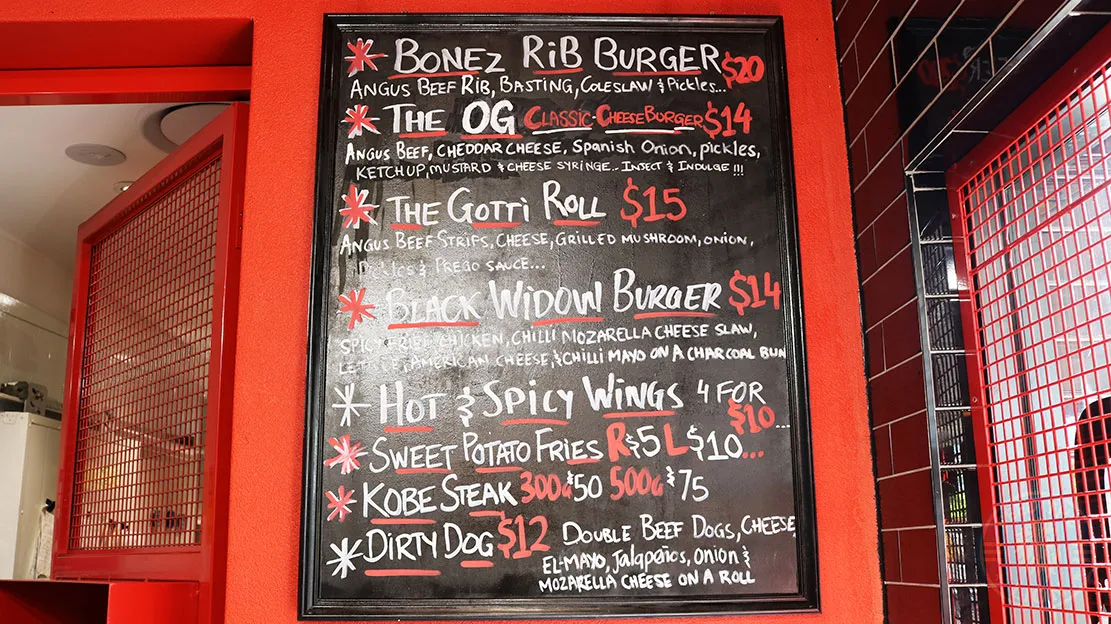 * BONEZ RiB BURGER $20
ANGUS BEEF RIB, BASTING, COLESLAW & PickLes...
* THE OG CLASSIC-CHEESEBURGER $14
ANGUS BEEF, CHEDDAR CHEESE, SpaNish ONioN, pickles,
KETCHUP, MUSTARD & CHEESE SYRINGE... INJECT & INDULGE !!!
* THE GOTTi ROLL $15
ANGUS BEEF STRIPS, CHEESE, GRILLED MUSHROOM, ONION,
Pickles & PREGO SAUCE...
* BLACK WIDOW BURGER $14
SPICY FRIED CHICKEN, CHILLI MOZARELLA CHEESE SLAW,
LETTUCE, AMERICAN CHEESE, & CHILLI MAYO ON A CHARCOAL BUN
* HOT & SPICY WINGS 4 FOR $10...
* SWEET POTATO FRIES R $5 L $10...
* KOBE STEAK 300G $50 500G $75
* DIRTY DOG $12 DOUBLE BEEF DOGS, CHEESE,
EL-MAYO, Jalapeños, ONiON &
MOZARELLA CHEESE ON A ROLL